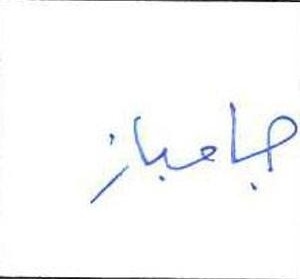 جامباز